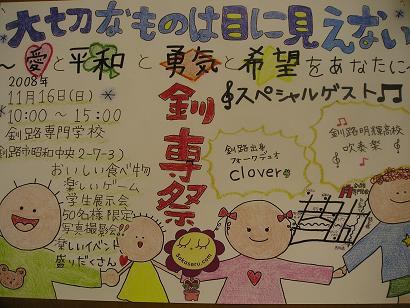 大切なものは目に見えない
～愛と平和と勇気と希望をあなたに～
2008年
11月16日(日)
10:00～15:00
釧路専門学校
釧路市昭和中央2-7-3)
おいしい食べ物
楽しいゲーム
学生展示会
50名様限定!
写真撮影会!!
楽しいイベント
盛りだくさん
釧専祭
Sokoseru.com
スペシャルゲスト
釧路出身
フォークデュオ
clover
釧路明輝高校
吹奏楽